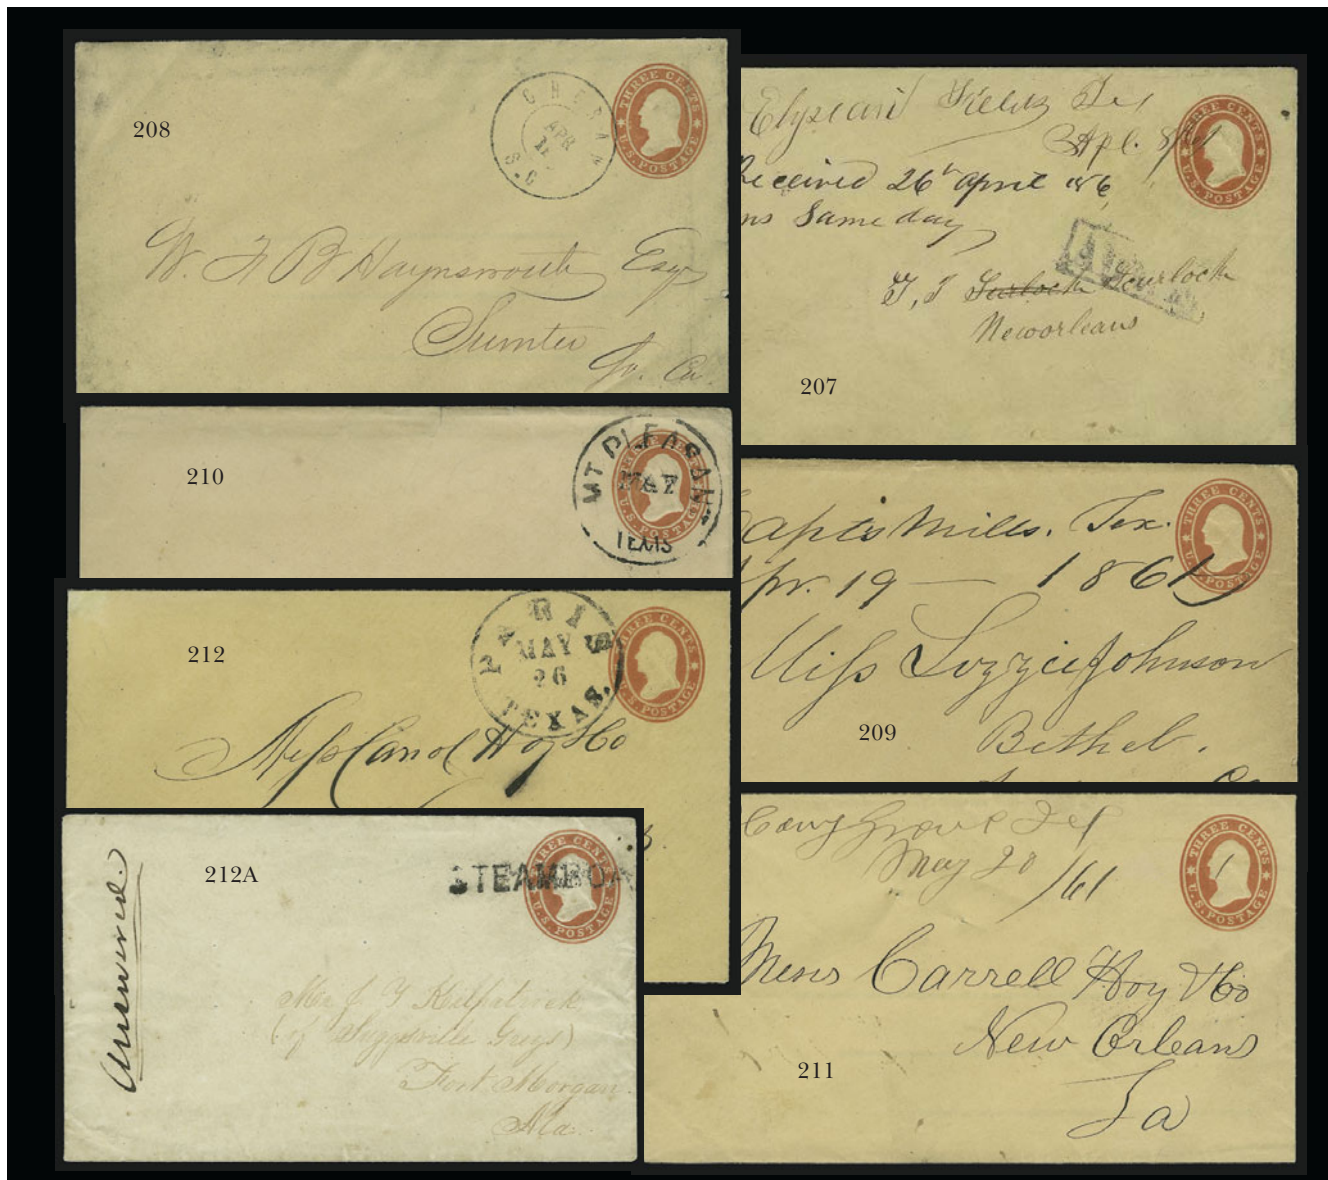 208
CHERAW
APR
11
S.C
THREE CENTS
U.S. POSTAGE
W. F. B Haynsworth Esqr
Sumter
So. Ca.
Elysian Fields Tex
Apl. 8/61
Received 26th april 186
ns Same day
THREE CENTS
U.S. POSTAGE
T, J Turlock
Neworleans
207
210
MT PLEASANT
MAY
TEXAS
THREE CENTS
U.S. POSTAGE
Mills. Tex.
Apr. 19 — 1861
THREE CENTS
U.S. POSTAGE
Miss Lizzie Johnson
Bethel.
Co
209
212
PARIS
MAY
26
TEXAS.
THREE CENTS
U.S. POSTAGE
Hoy & Co
212A
Answered.
STEAMBOA
THREE CENTS
U.S. POSTAGE
Mr J
(of Suggsville Greys)
Fort Morgan
Ala.
Grove Tex
May 20/61
THREE CENTS
U.S. POSTAGE
Mess Carrell Hoy & Co
New Orleans
La
211